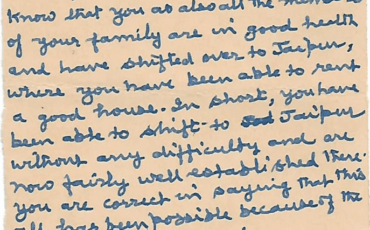 know that you as also all the members
of your family are in good health
and have shifted over to Jaipur,
where you have been able to rent
a good house. In short, you have
been able to shift to Jaipur
without any difficulty and are
now fairly well established there.
you are correct in saying that this
all has been possible because of the